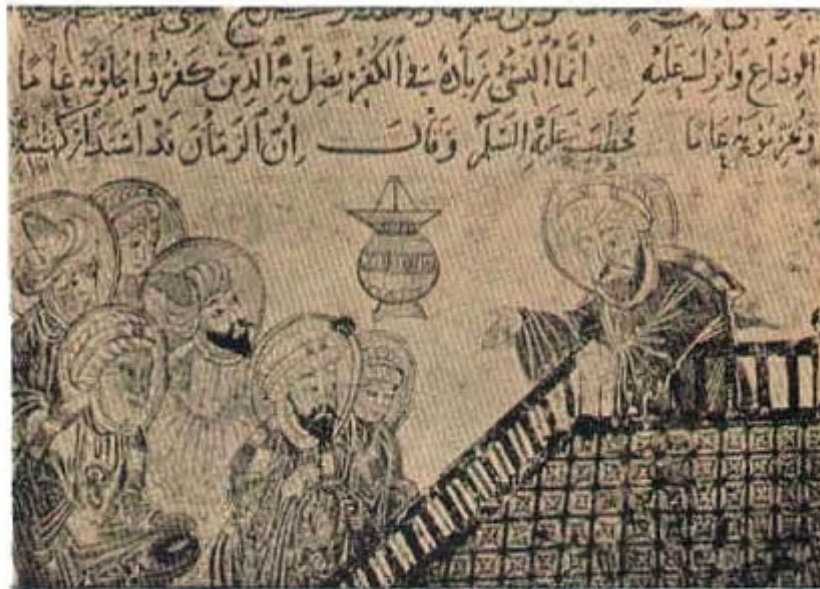 الوداع وانزل عليه انما النسئ زيادة في الكفر يضل به الذين كفروا يحلونه عاما
ويحرمونه عاما فخطب عليه السلم وقال ان الزمان قد استدار كهيئته